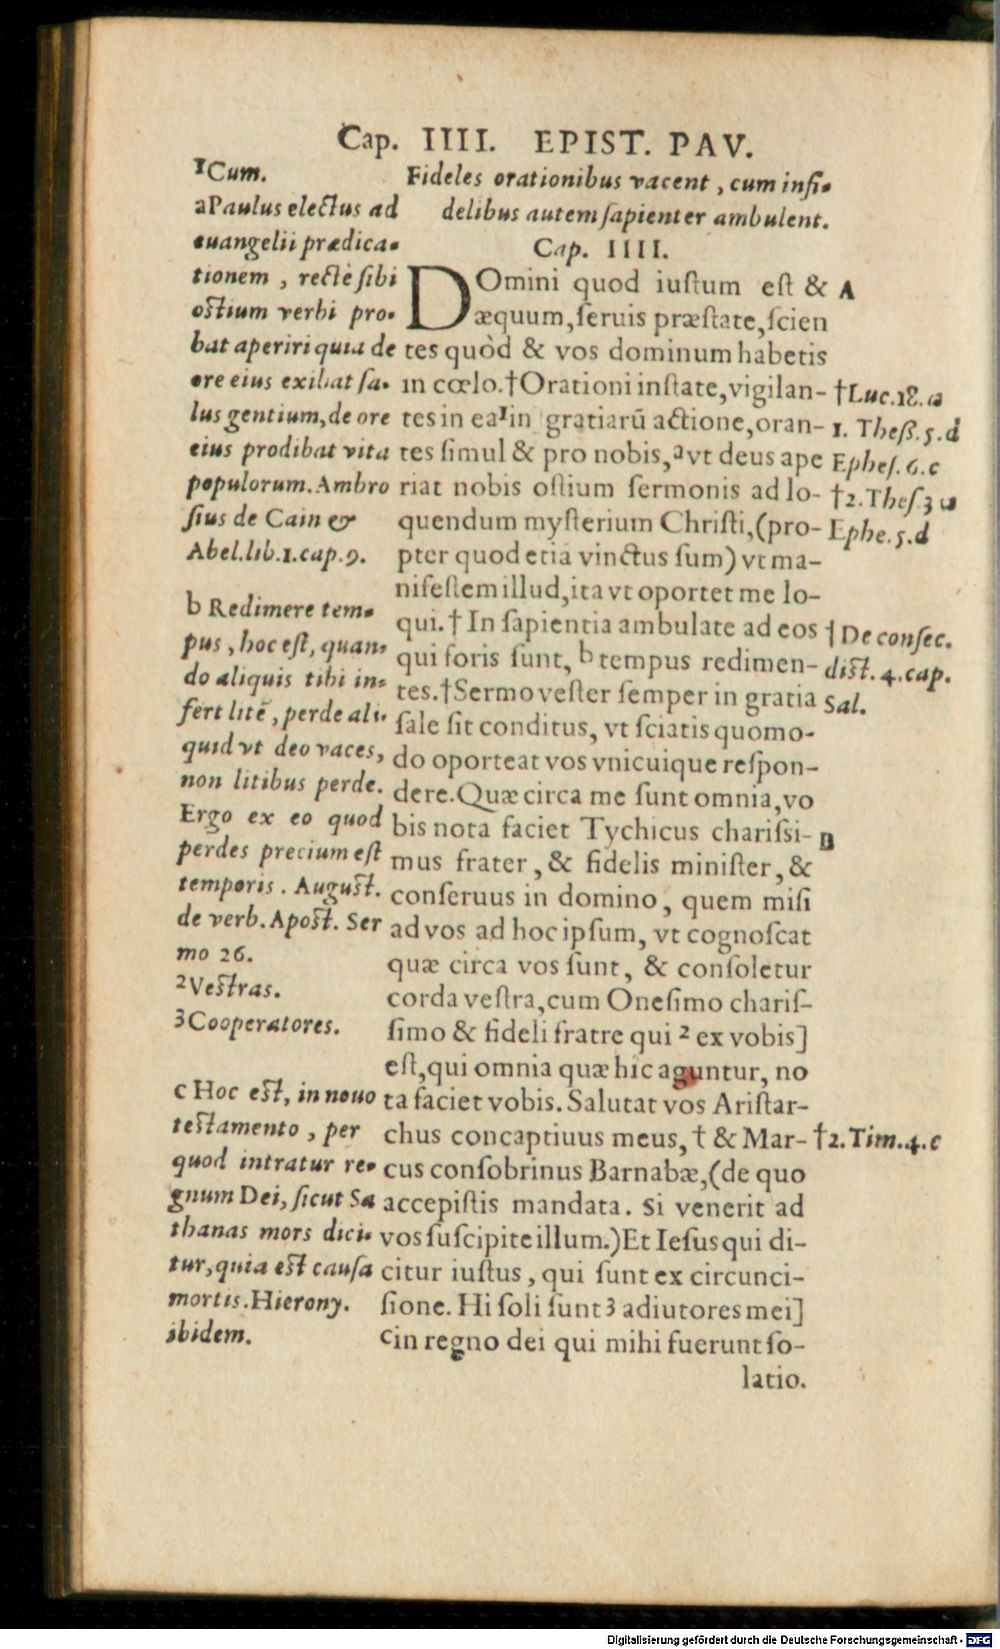 Cap. IIII. EPIST. PAV.
Fideles orationibus vacent, cum infi-
delibus autem ſapienter ambulent.
Cap. IIII.
DOmini quod iuſtum eſt &
æquum, ſeruis præſtate, ſcien
tes quòd & vos dominum habetis
in cœlo. †Orationi inſtate, vigilan-
tes in ea ¹in gratiarū actione, oran-
tes ſimul & pro nobis, ᵃvt deus ape
riat nobis oſtium ſermonis ad lo-
quendum myſterium Chriſti, (pro-
pter quod etiā vinctus ſum) vt ma-
nifeſtem illud, ita vt oportet me lo-
qui. † In ſapientia ambulate ad eos
qui foris ſunt, ᵇ tempus redimen-
tes. †Sermo veſter ſemper in gratia
ſale ſit conditus, vt ſciatis quomo-
do oporteat vos vnicuique reſpon-
dere. Quæ circa me ſunt omnia, vo
bis nota faciet Tychicus chariſsi-
mus frater, & fidelis miniſter, &
conſeruus in domino, quem miſi
ad vos ad hoc ipſum, vt cognoſcat
quæ circa vos ſunt, & conſoletur
corda veſtra, cum Oneſimo chariſ-
ſimo & fideli fratre qui ² ex vobis]
eſt, qui omnia quæ hic aguntur, no
ta faciet vobis. Salutat vos Ariſtar-
chus concaptiuus meus, † & Mar-
cus conſobrinus Barnabæ, (de quo
accepiſtis mandata. Si venerit ad
vos ſuſcipite illum.) Et Ieſus qui di-
citur iuſtus, qui ſunt ex circunci-
ſione. Hi ſoli ſunt ³ adiutores mei]
ᶜin regno dei qui mihi fuerunt ſo-
latio.
¹Cum.
aPaulus electus ad
euangelii prædica-
tionem, rectè ſibi
oſtium verbi pro-
bat aperiri quia de
ore eius exibat ſa-
lus gentium, de ore
eius prodibat vita
populorum. Ambro
ſius de Cain &
Abel. lib. 1. cap. 9.
b Redimere tem-
pus, hoc eſt, quan-
do aliquis tibi in-
fert litē, perde ali-
quid vt deo vaces,
non litibus perde.
Ergo ex eo quod
perdes precium eſt
temporis. Auguſt.
de verb. Apoſt. Ser
mo 26.
²Veſtras.
³Cooperatores.
c Hoc eſt, in nouo
teſtamento, per
quod intratur re-
gnum Dei, ſicut Sa
thanas mors dici-
tur, quia eſt cauſa
mortis. Hierony.
ibidem.
A
†Luc. 18. a
1. Theſſ. 5. d
Epheſ. 6. c
†2. Theſ. 3 a
Ephe. 5. d
†De conſec.
diſt. 4. cap.
Sal.
B
†2. Tim. 4. c
Digitalisierung gefördert durch die Deutsche Forschungsgemeinschaft - DFG